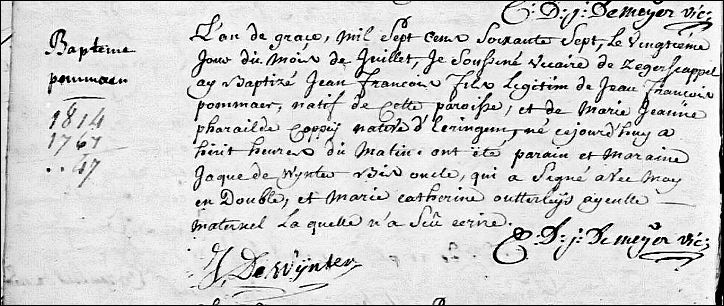 E: D: j: De meyer vic:
Bapteme
pommaer
1814
1767
..47
L'an de grace, Mil Sept Cens Soixante Sept, Le vingtiéme
Jour du Mois de Juillet, Je Soussiné vicaire de Zegerscappel
ay Baptizé Jean François Fils Legitim de Jean François
pommaer, natif de Cette paroisse, et de Marie Jeanne
pharailde Coppeÿ native d'Eringem, né cejourd'huy a
huit heures du Matin: ont été parain et Maraine
Jaque de Wÿnter oncle, qui a Signé avec Moy
en Double, et Marie Catherine outterleÿs ayeulle
Maternel La quelle n'a Sçû écrire.
E: D: j: De meyer vic:
J. De Wÿnter